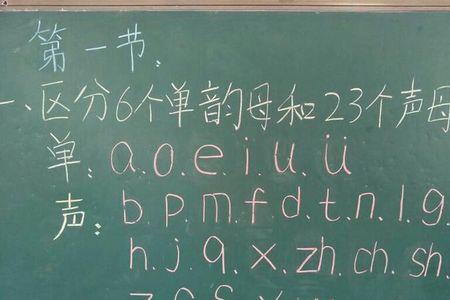 第一节:
一、区分6个单韵母和23个声母
单: a.o.e.i.u.ü
声: b.p.m.f.d.t.n.l.g.
h.j.q.x.zh.ch.sh.